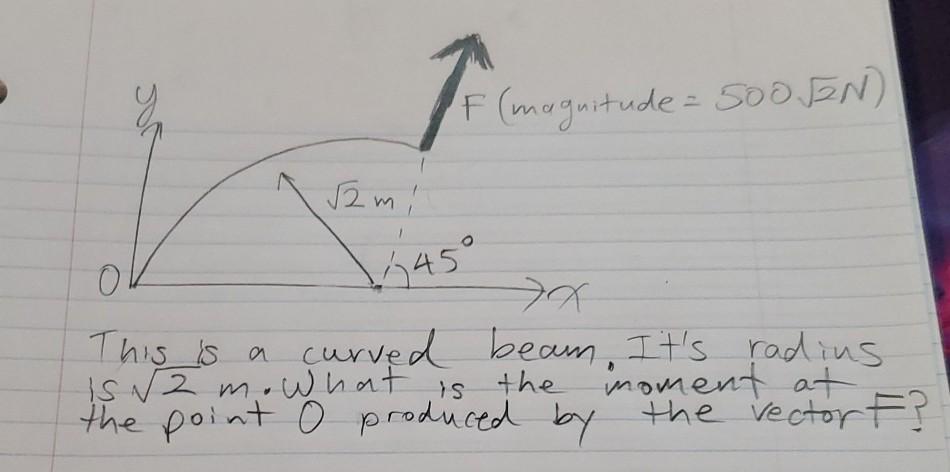 y
F (magnitude = 500√2N)
√2 m
45°
O
x
This is a curved beam. It's radius
is √2 m. What is the moment at
the point O produced by the vector F?